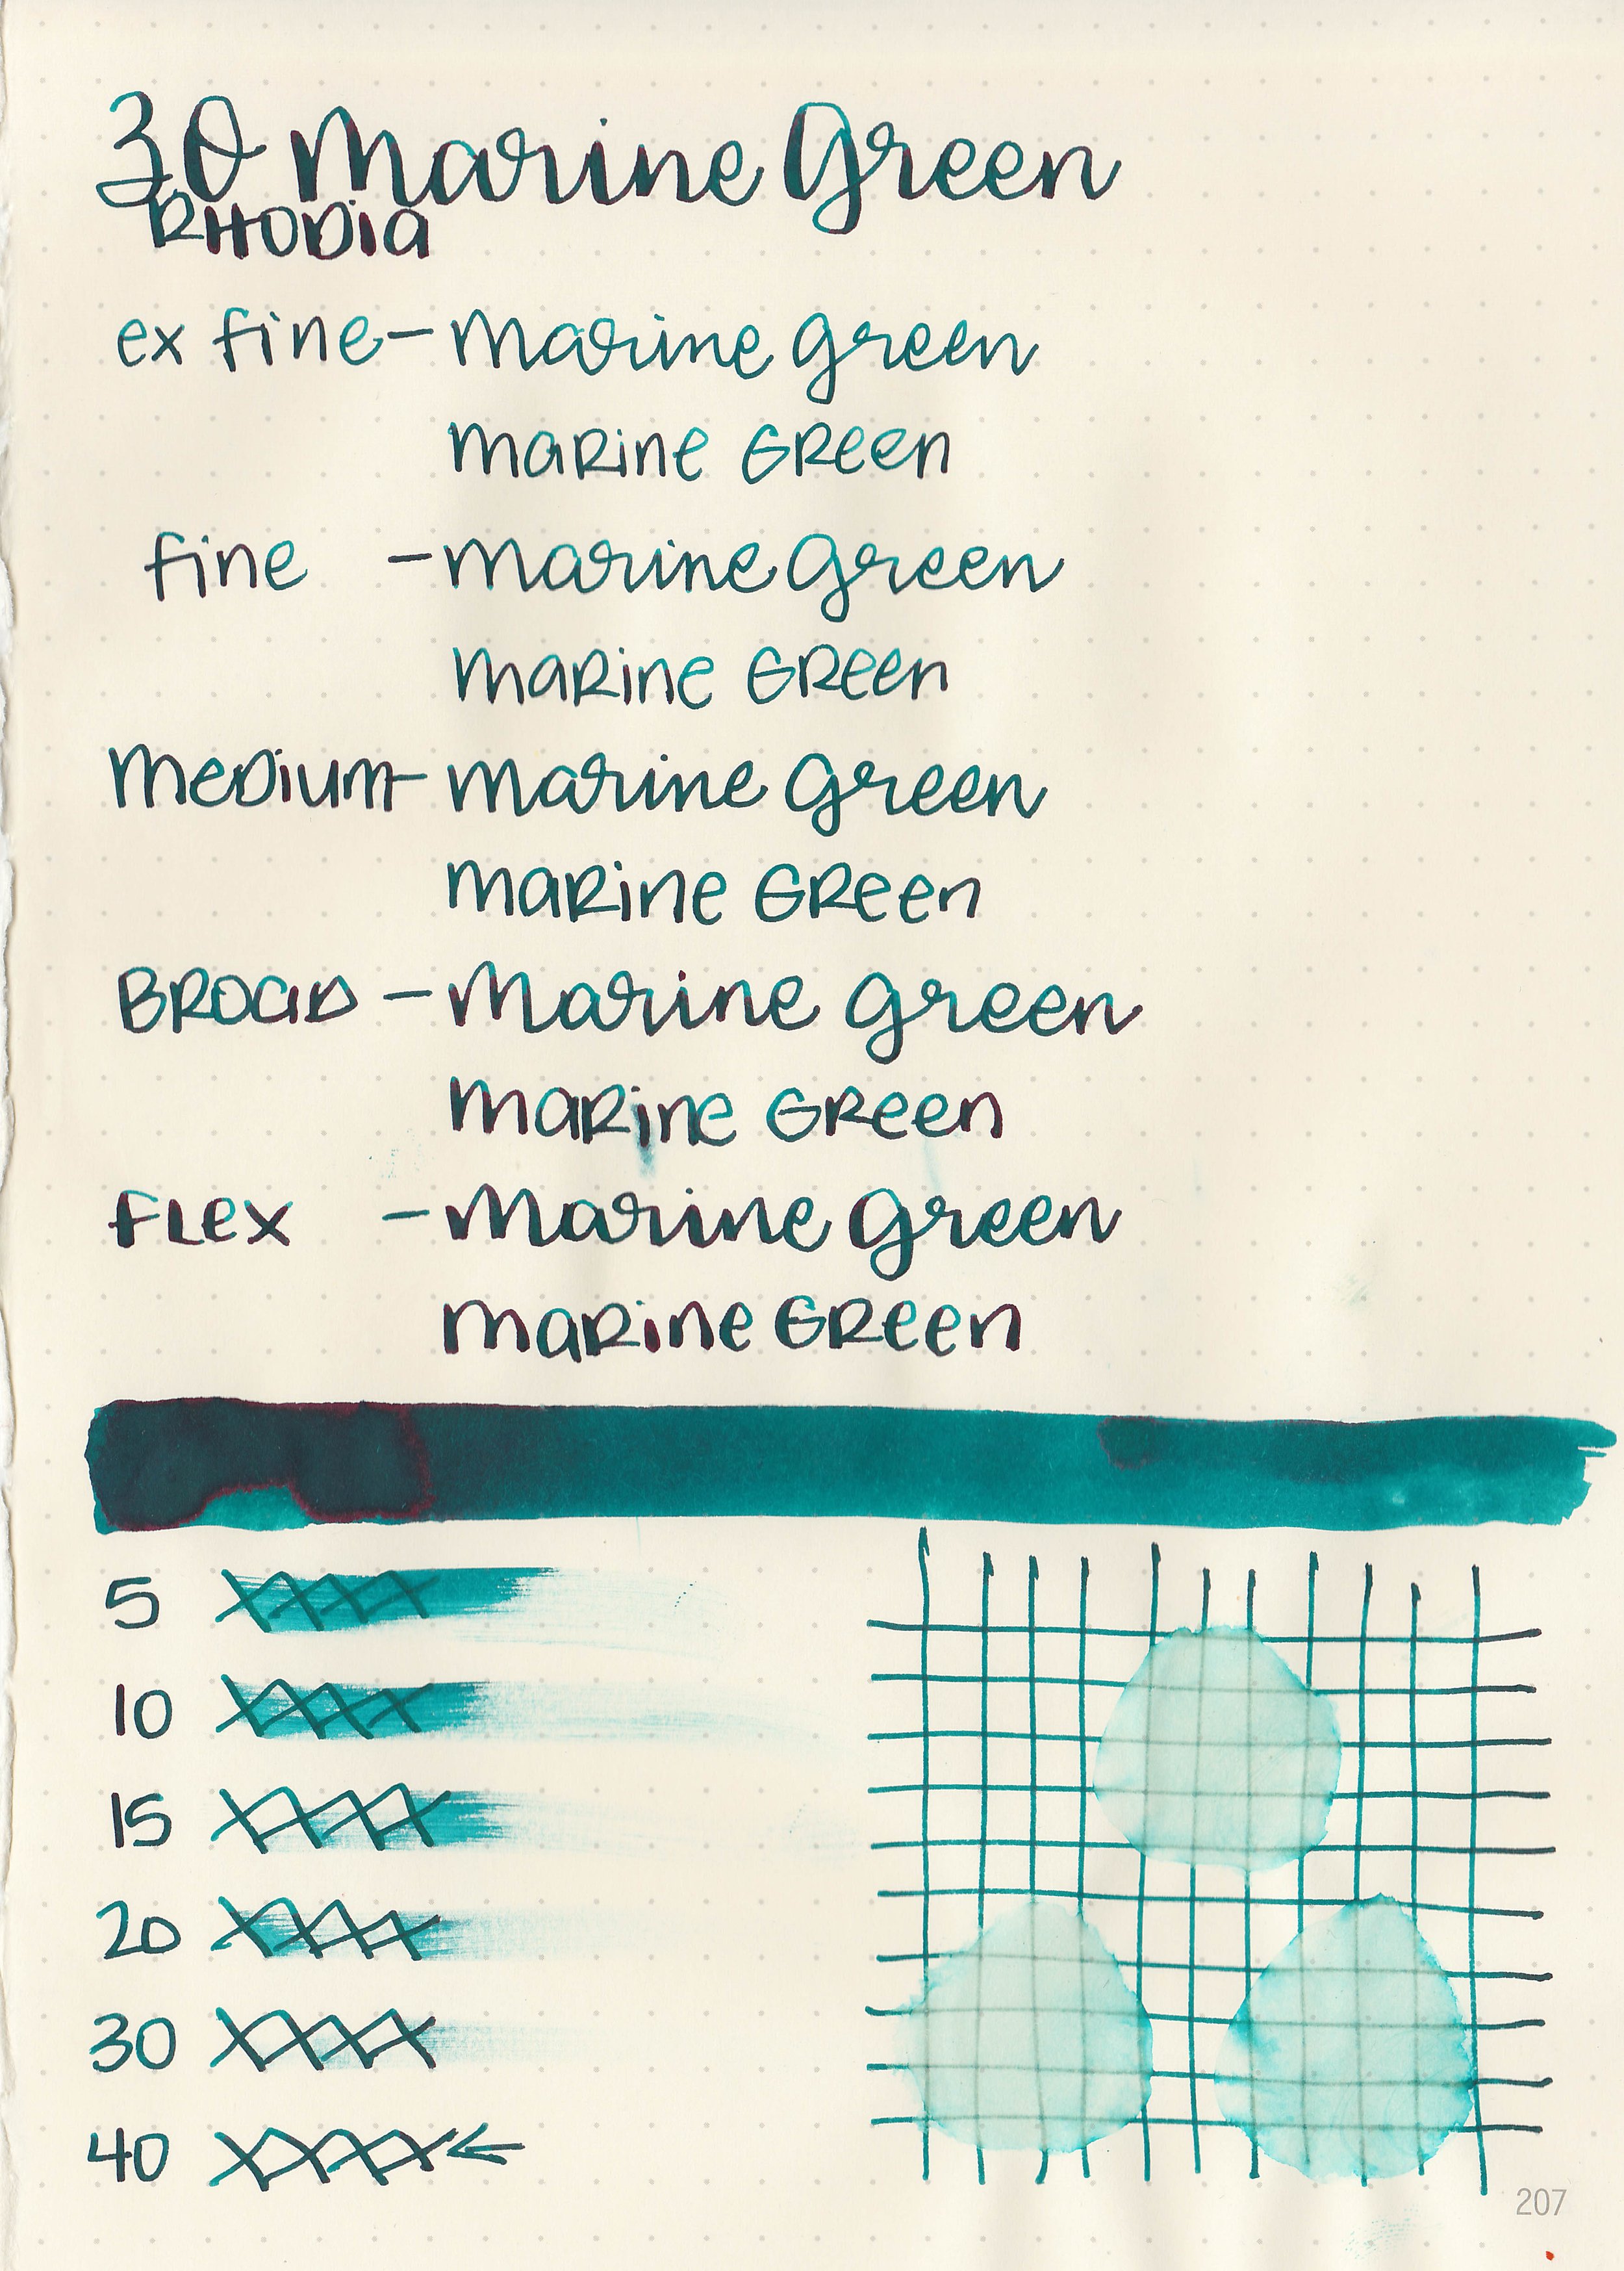 30 Marine Green
RHODia
ex fine - Marine Green
MaRine GReen
fine - Marine Green
MaRine GReen
MeDium - Marine Green
MaRine GReen
BROaD - Marine Green
MaRine GReen
FLex - Marine Green
MaRine GReen
5 XXXX
10 XXXX
15 XXXX
20 XXXX
30 XXXX
40 XXXX ←
207